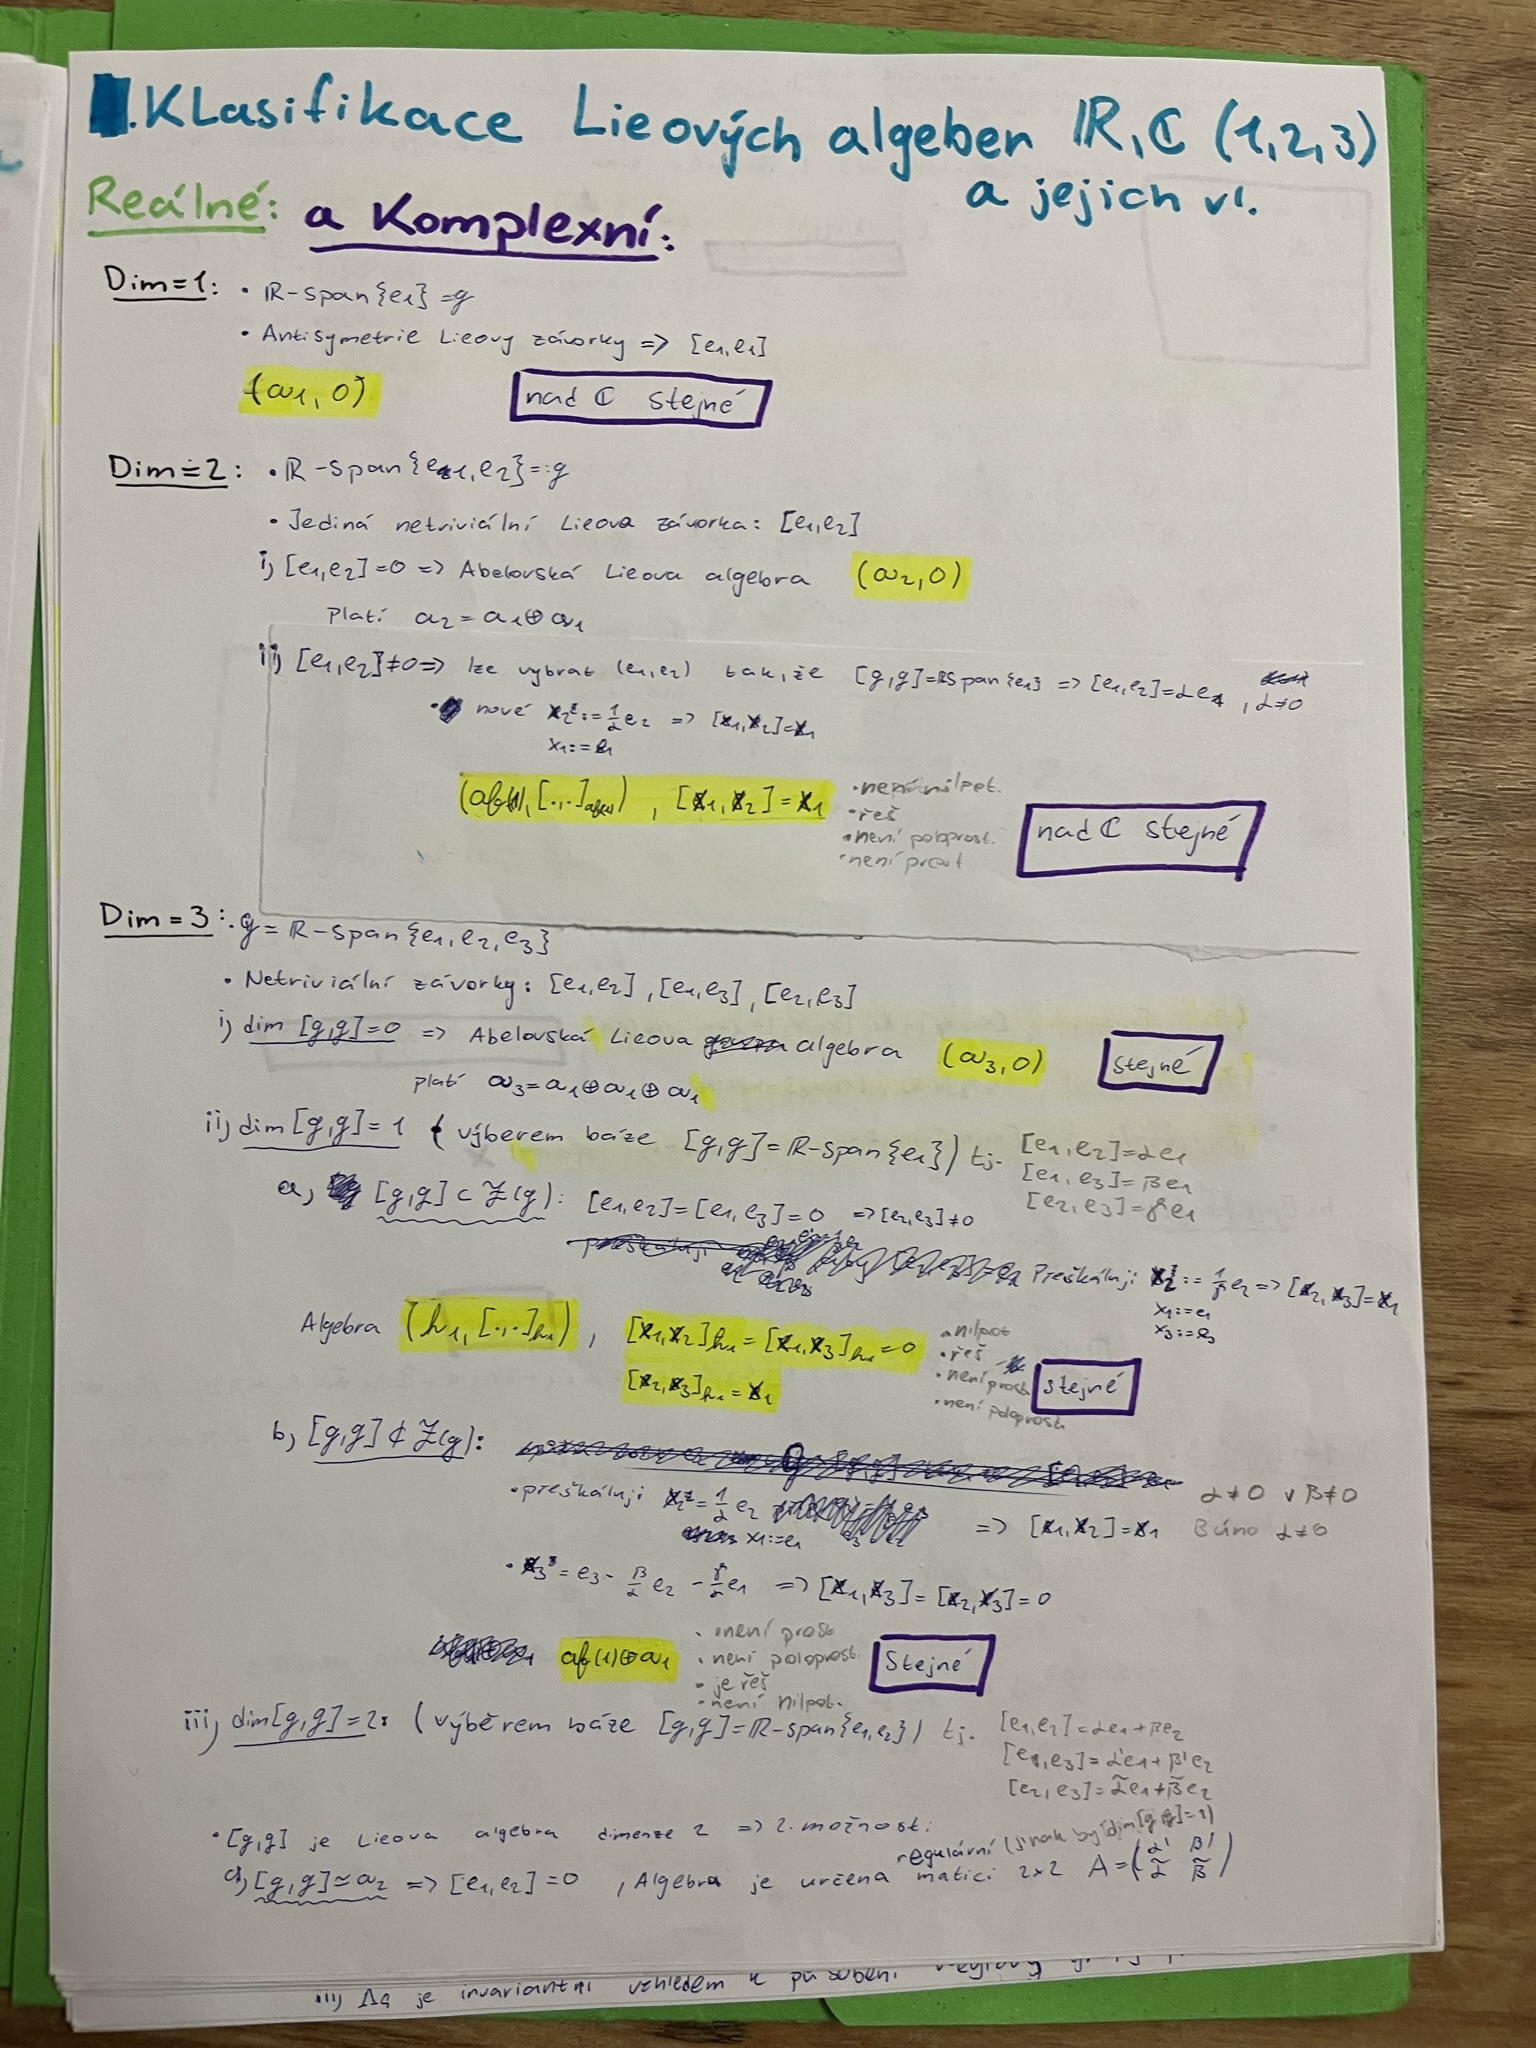 . Klasifikace Lieových algeber ℝ, ℂ (1,2,3)
a jejich vl.
Reálné: a Komplexní:
Dim=1: • ℝ-span{e1} = g
• Antisymetrie Lieovy závorky => [e1,e1]
(a1, 0) nad ℂ stejné
Dim=2: • ℝ-span{e1,e2}=:g
• Jediná netriviální Lieova závorka: [e1,e2]
i) [e1,e2]=0 => Abelovská Lieova algebra (a2,0)
Platí a2 = a1⊕a1
ii) [e1,e2]≠0 => lze vybrat (e1,e2) tak, že [g,g]=ℝSpan{e1} => [e1,e2]=αe1, α≠0
• nové x2:=1/α e2 => [x1,x2]=x1
x1:=e1
(af(1),[.,.]af(1)), [x1,x2]=x1
• není nilpot.
• řeš
• není poloprost.
• není prost
nad ℂ stejné
Dim=3: • g = ℝ-span{e1,e2,e3}
• Netriviální závorky: [e1,e2], [e1,e3], [e2,e3]
i) dim [g,g]=0 => Abelovská Lieova algebra (a3,0) stejné
platí a3=a1⊕a1⊕a1
ii) dim [g,g]=1 (výberem báze [g,g]=ℝ-span{e1}) tj. [e1,e2]=αe1
[e1,e3]=βe1
[e2,e3]=γe1
a) [g,g]⊂Z(g): [e1,e2]=[e1,e3]=0 => [e2,e3]≠0
Přeškáluji x2:=1/γ e2 => [x2,x3]=x1
x1:=e1
x3:=e3
Algebra (h1,[.,.]h1), [x1,x2]h1=[x1,x3]h1=0
[x2,x3]h1=x1
• nilpot
• řeš
• není prost
• není poloprost.
stejné
b) [g,g]⊄Z(g):
• přeškáluji x2=1/α e2 => [x1,x2]=x1
x1:=e1
α≠0 ∨ β≠0
Búno α≠0
• x3=e3 - β/α e2 - γ/α e1 => [x1,x3]=[x2,x3]=0
af(1)⊕a1
• není prost
• není poloprost.
• je řeš
• není nilpot.
Stejné
iii) dim[g,g]=2: (výběrem báze [g,g]=ℝ-span{e1,e2}) tj. [e1,e2]=αe1+βe2
[e1,e3]=α'e1+β'e2
[e2,e3]=α̃e1+β̃e2
• [g,g] je Lieova algebra dimenze 2 => 2 možnosti:
regulární (jinak by dim[g,g]=1)
a) [g,g]≃a2 => [e1,e2]=0, Algebra je určena maticí 2x2 A=(α' β' / α̃ β̃)
iii) Δg je invariantní vzhledem k působení